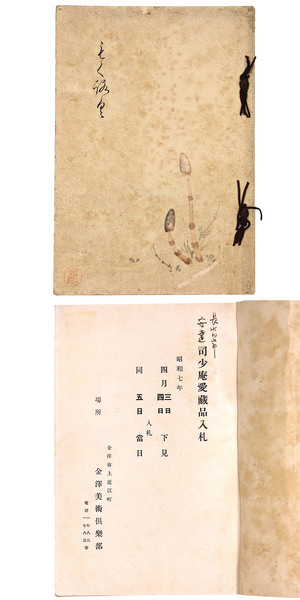 安達司少庵愛藏品入札
昭和七年
四月三日
四日 下見
入札
同 五日 當日
場所
金澤市上近江町
金澤美術俱樂部
電話